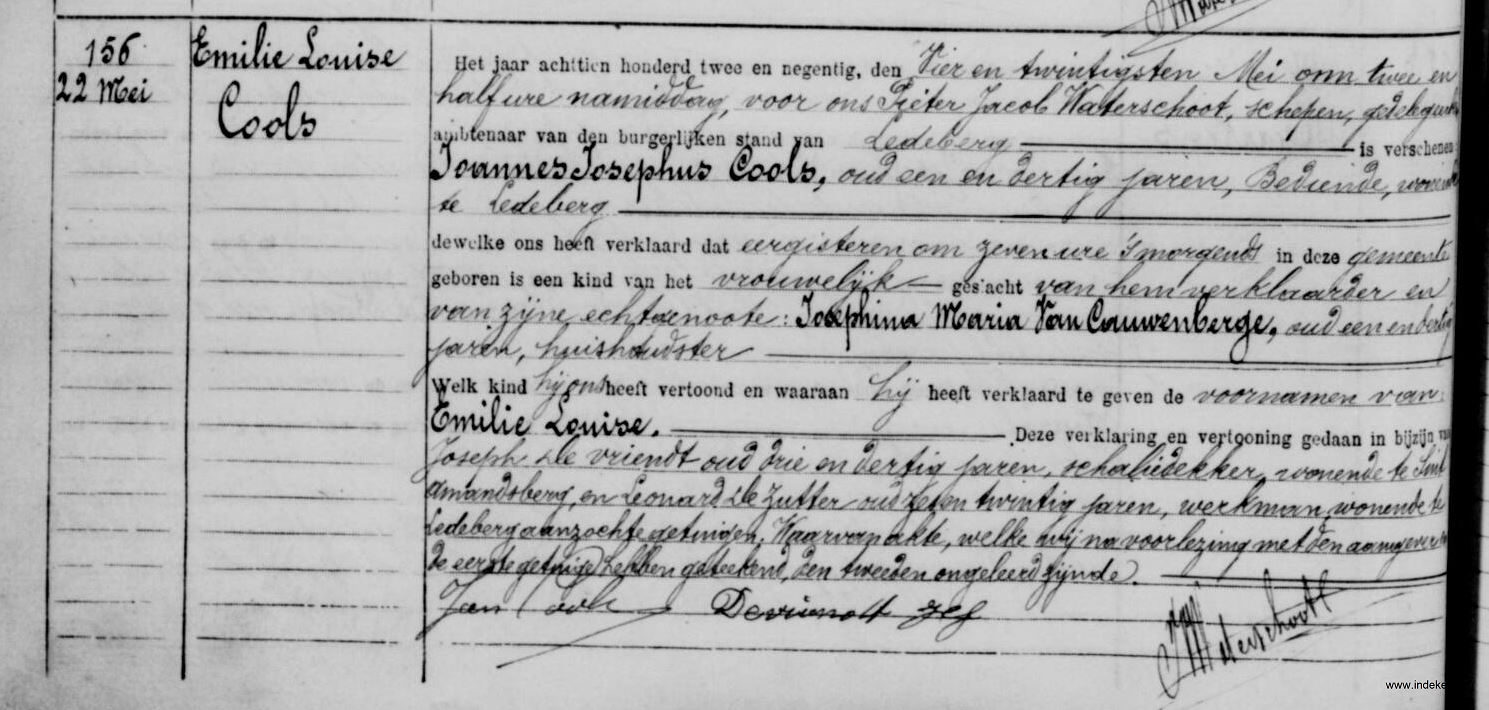 156
22 Mei
Emilie Louise
Cools
Het jaar achttien honderd twee en negentig, den Vier en twintigsten Mei om twee en
half ure namiddag, voor ons Pieter Jacob Waterschoot, schepen, gedelegueerd
ambtenaar van den burgerlijken stand van Ledeberg is verschenen
Joannes Josephus Cools, oud een en dertig jaren, Bediende, wonende
te Ledeberg
dewelke ons heeft verklaard dat eergisteren om zeven ure 's morgends in deze gemeente
geboren is een kind van het vrouwelijk geslacht van hem verklaarder en
van zijne echtgenoote: Josephina Maria Van Cauwenberge, oud een en dertig
jaren, huishoudster
Welk kind hij ons heeft vertoond en waaraan hij heeft verklaard te geven de voornamen van
Emilie Louise. Deze verklaring en vertooning gedaan in bijzijn van
Joseph De vriendt oud drie en dertig jaren, schaliedekker, wonende te Sint
Amandsberg, en Leonard De Zutter oud zes en twintig jaren, werkman, wonende te
Ledeberg aanzochte getuigen. Waarvan akte, welke wij na voorlezing met den aangever en
de eerste getuige hebben geteekend, den tweeden ongeleerd zijnde.
Jan Cools Devriendt Jos
Waterschoot
www.indeke